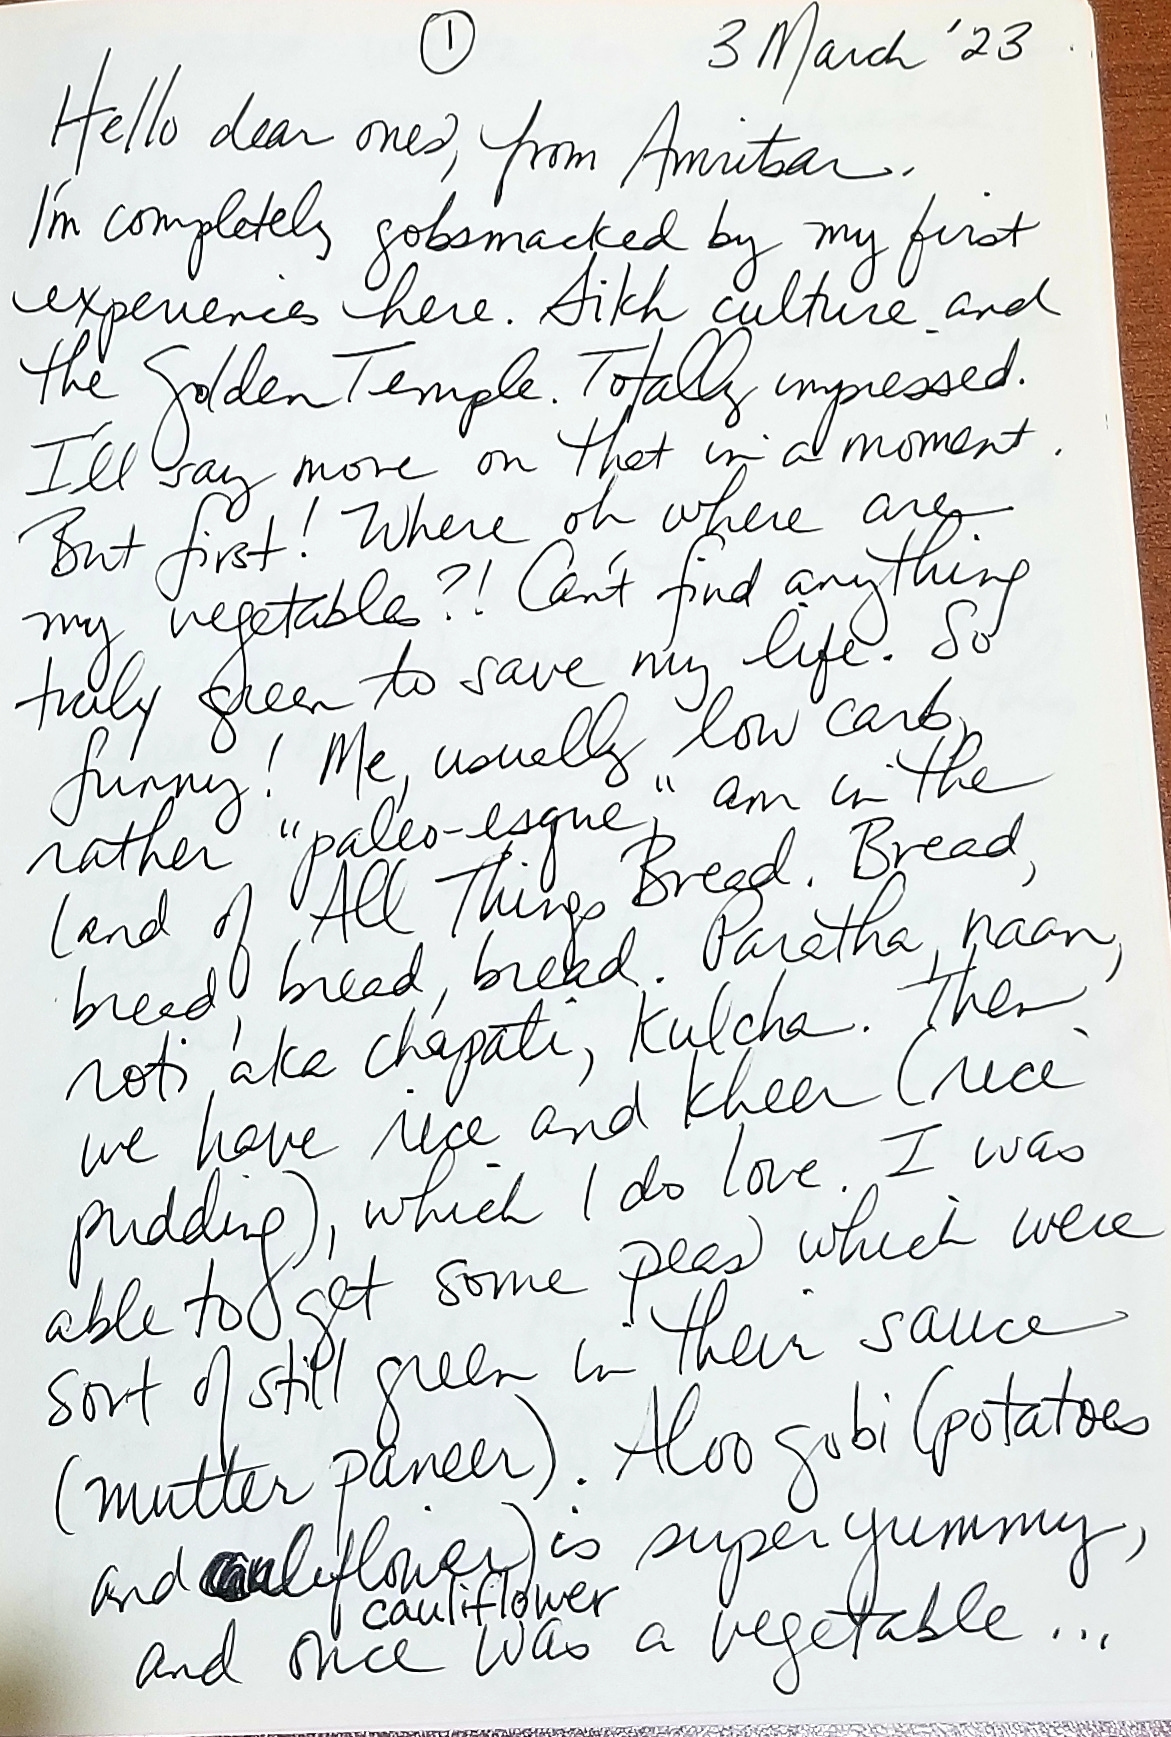 1 3 March '23
Hello dear ones, from Amritsar.
I'm completely gobsmacked by my first
experiences here. Sikh culture and
the Golden Temple. Totally impressed.
I'll say more on that in a moment.
But first! Where oh where are
my vegetables?! Can't find anything
truly green to save my life. So
funny! Me, usually low carb,
rather "paleo-esque," am in the
land of All Things Bread. Bread,
bread, bread, bread. Paratha, naan,
roti aka chapati, Kulcha. Then
we have rice and kheer (rice
pudding), which I do love. I was
able to get some peas which were
sort of still green in their sauce
(mutter paneer). Aloo gobi (potatoes
and cauliflower) is super yummy,
cauliflower
and once was a vegetable...